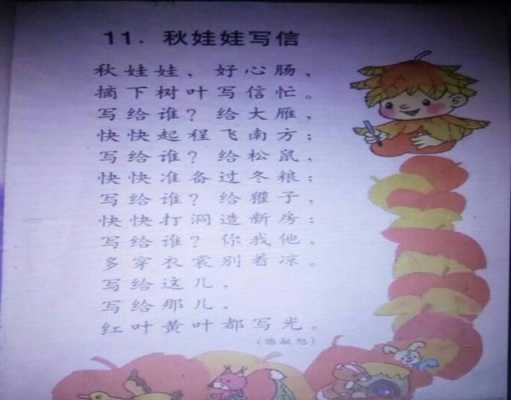 11. 秋娃娃写信
秋娃娃，好心肠，
摘下树叶写信忙。
写给谁？给大雁，
快快起程飞南方；
写给谁？给松鼠，
快快准备过冬粮；
写给谁？给獾子，
快快打洞造新房；
写给谁？你我他，
多穿衣裳别着凉。
写给这儿，
写给那儿，
红叶黄叶都写光。